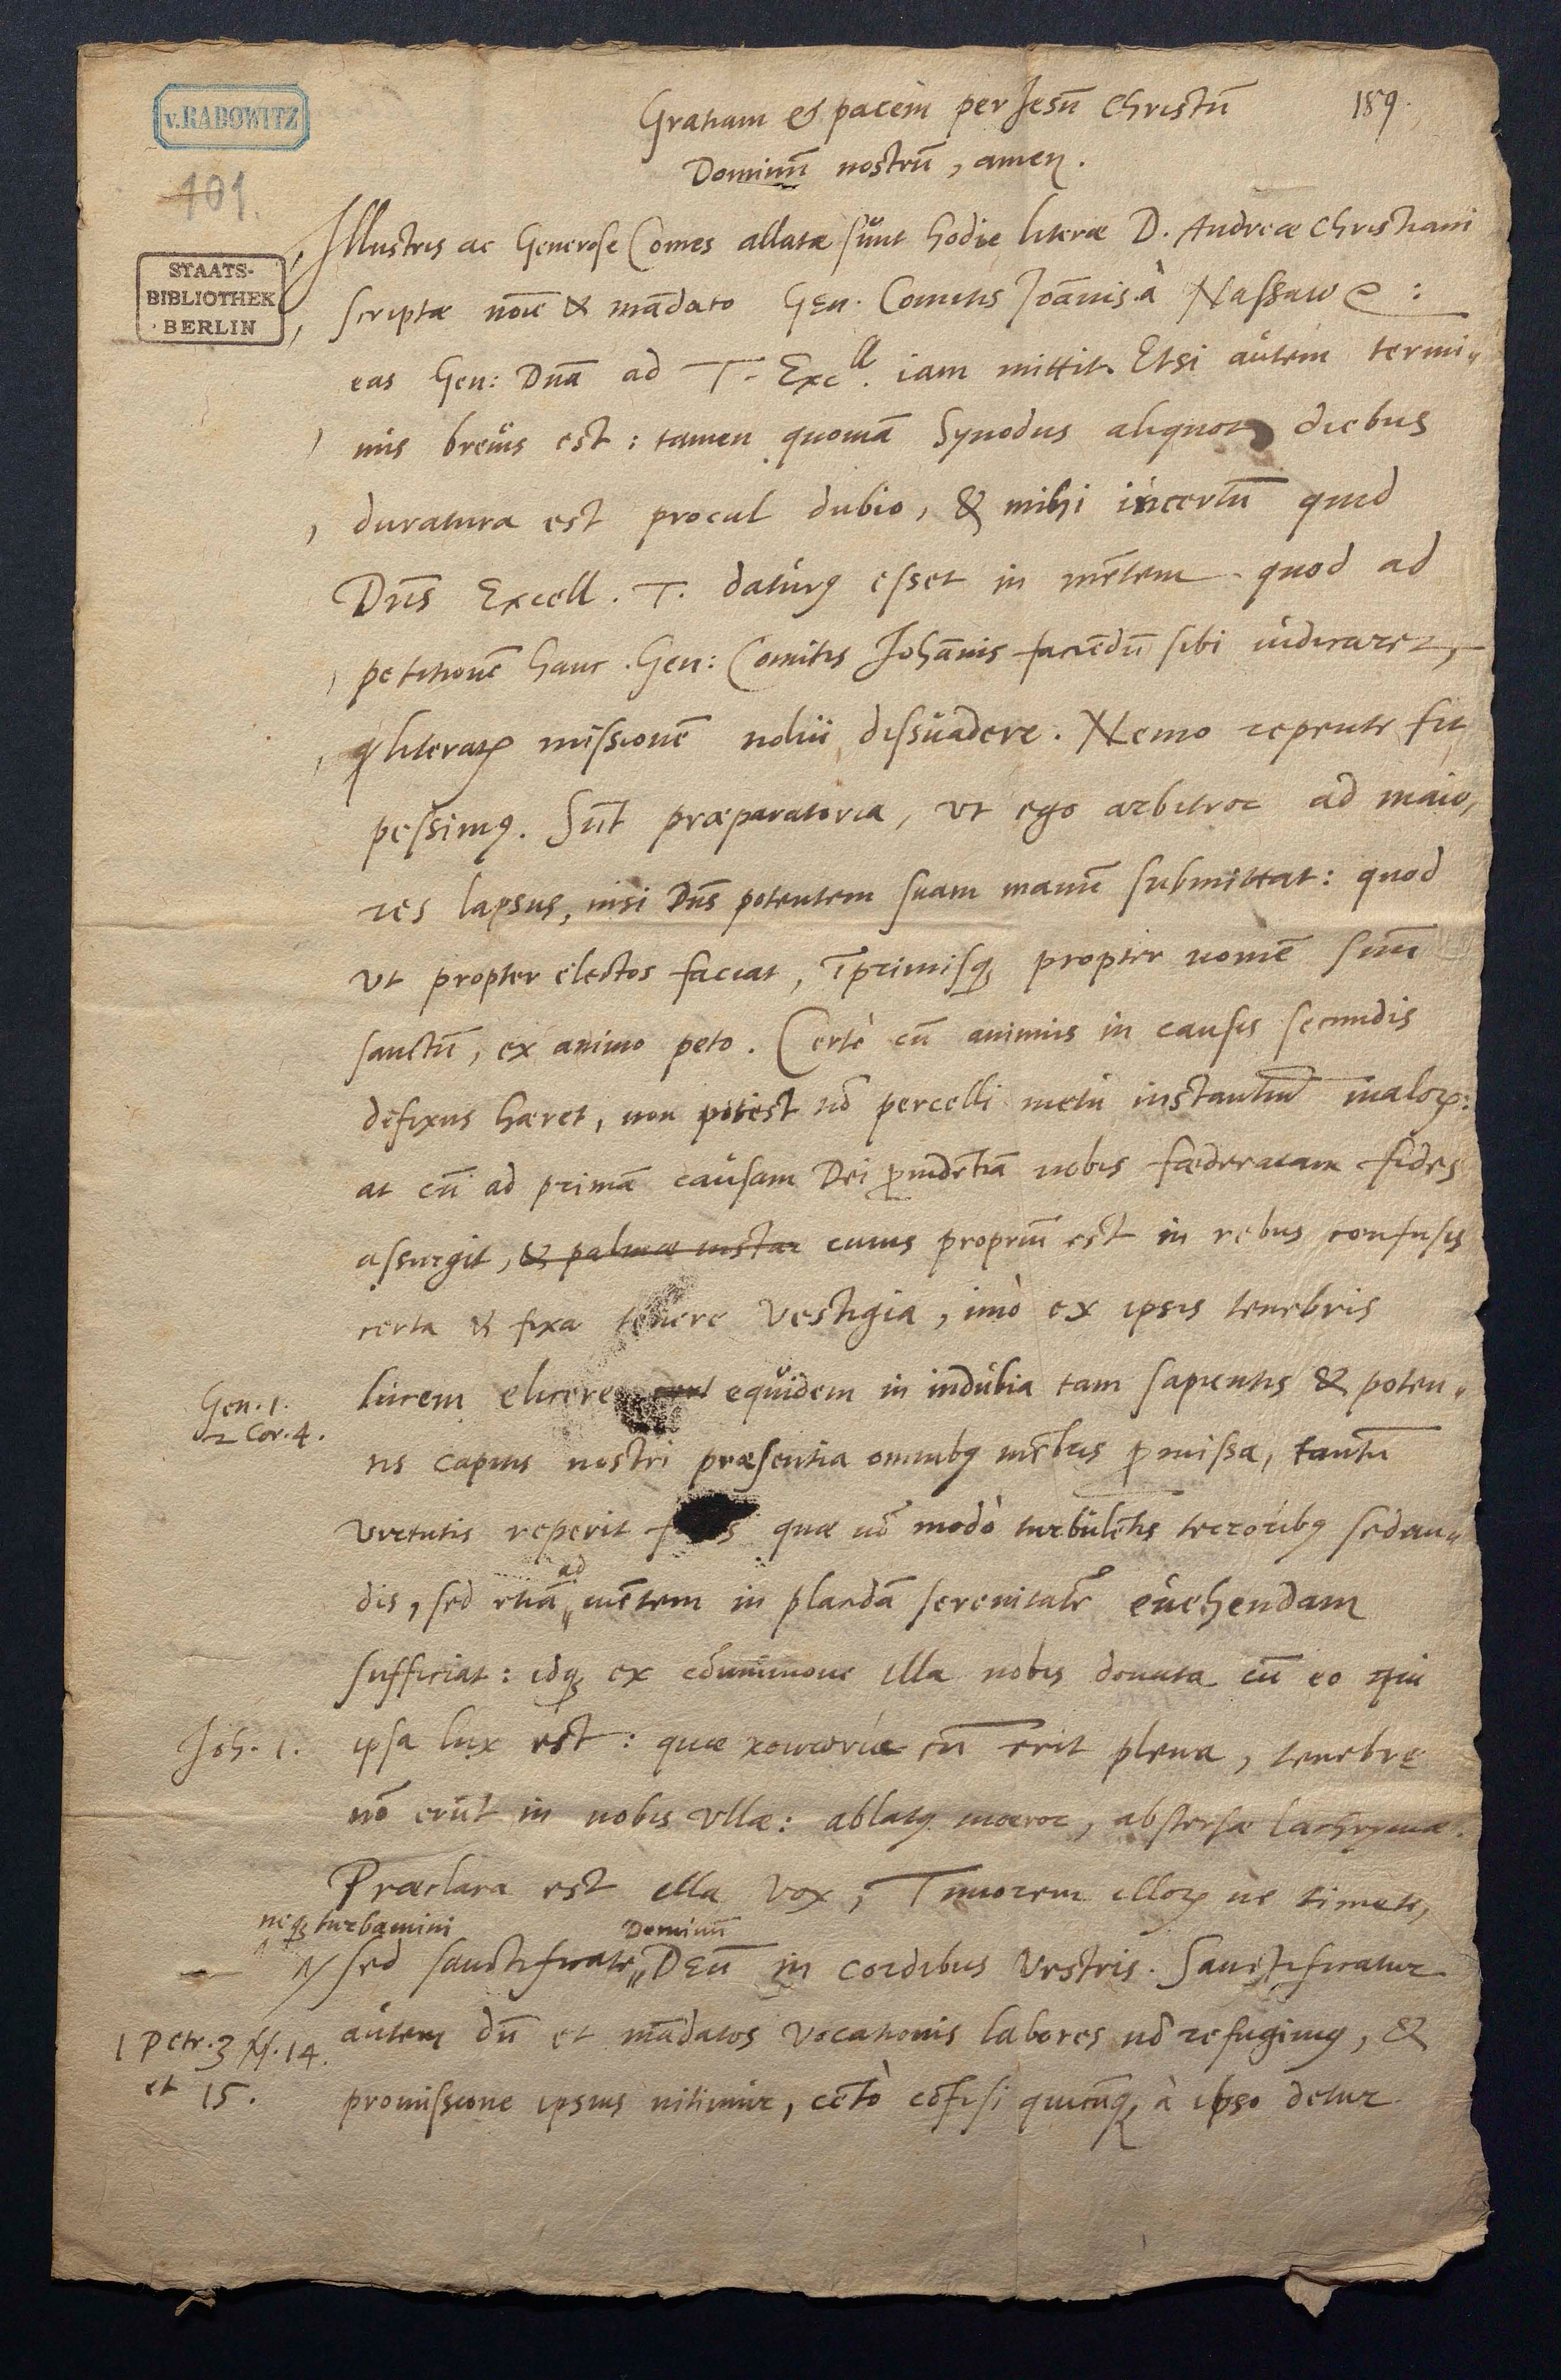 v.RADOWITZ
101.
STAATS-
BIBLIOTHEK
BERLIN
189.
Gratiam & pacem per Jesū Christū
Dominū nostrū, amen.
Illustris ac Generose Comes allatæ sunt hodie literæ D. Andreæ Christiani
scriptæ noīe & mādato Gen. Comitis Joānis à Nassaw
eas Gen: Dnā ad T. Excll. iam mittit. Etsi autem termi„
nus brevis est: tamen quoniā Synodus aliquot diebus
duratura est procul dubio, & mihi incertū quid
Dn̄s Excell. T. daturꝰ esset in mētem quod ad
petitionē hanc Gen: Comitis Johānis faciēdū sibi iudicaret,
literarꝝ missionē nolui dissuadere. Nemo repente fit
pessimꝰ. Sūt præparatoria, ut ego arbitror ad maio„
res lapsus, nisi Dn̄s potentem suam manū submittat: quod
ut propter electos faciat, īprimisqꝫ propter nomē suū
sanctū, ex animo peto. Certè cū animus in causis secundis
defixus hæret, non potest nō percelli metu instantiū malorꝝ:
at cū ad primā causam Dei ꝓvidētiā nobis fæderatam fides
assurgit, & palmæ instar cuius propriū est in rebus confusis
certa & fixa tenere vestigia, imò ex ipsis tenebris
Gen. 1.
2 Cor. 4.
lucem elicere equidem in indubia tam sapientis & poten„
tis capitis nostri præsentia omnibꝰ mēbris ꝓmissa, tantū
virtutis reperit quæ nō modò turbulētis terroribꝰ sedan„
dis, sed etiā ad mētem in placidā serenitatē evehendam
sufficiat: idqꝫ ex cōmunione illa nobis donata cū eo qui
Joh. 1.
ipsa lux est: quæ κοινωνία cū erit plena, tenebrę
nō erūt in nobis ullæ: ablatꝰ mœror, abstersæ lachrymæ.
Præclara est illa vox, Timorem illorꝝ ne timete,
neqꝫ turbamini
Dominū
sed sanctificate„ DEū in cordibus vestris. Sanctificatur
1 Petr. 3 ℣. 14.
et 15.
autem dū et mādatos vocationis labores nō refugimꝰ, &
promissione ipsius nitimur, certò cōfisi quicūqꝫ à ipso detur